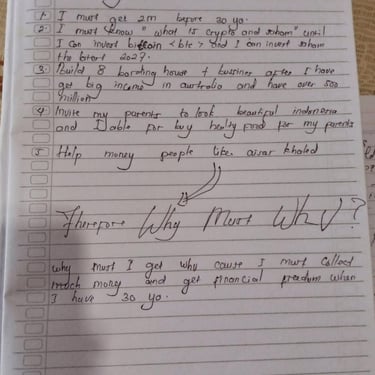 1. I must get 2m before 30 yo.
2. I must know "what is crypto and saham" until
I can invest bitcoin <btc> and I can invest saham
the latest 2027.
3. Build 8 boarding house + bussines after I have
get big income in australia and have over 500
million
4. Invite my parents to look beautiful indonesia
and I able for buy healty food for my parents
5. Help money people like aisar khaled
Therefore Why Must WHV?
why must I get whv cause I must collect
much money and get financial freedom when
I have 30 yo.